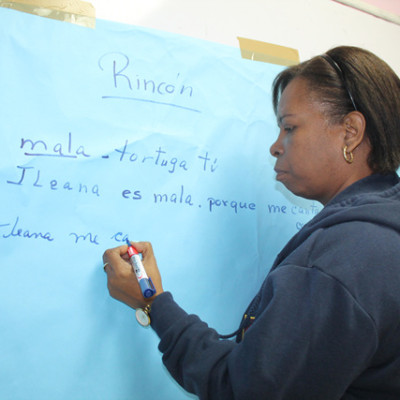 Rincón
mala - tortuga ti
Ileana es mala. porque me
Ileana me ca